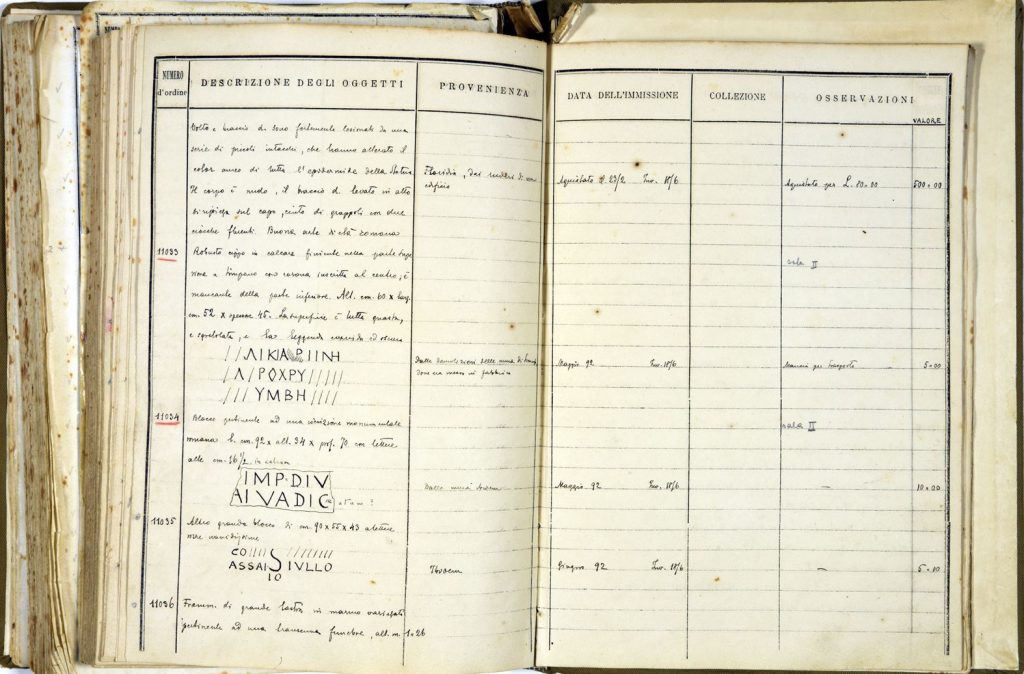 NUMERO d'ordine
DESCRIZIONE DEGLI OGGETTI
PROVENIENZA
DATA DELL'IMMISSIONE
COLLEZIONE
OSSERVAZIONI
VALORE
Volto e braccio d. sono fortemente lesionati da una
serie di piccoli intacchi, che hanno alterato il
color aureo di tutta l'epidermide della statua
Il corpo è nudo, il braccio d. levato in alto
si ripiega sul capo, cinto di grappoli con due
ciocche fluenti. Buona arte di età romana
Floridia, dai ruderi di un
edificio
Acquistato 23/2 Inv. 18/6
Acquistato per L. 80.00
500=00
11033
Robusto cippo in calcare finiente nella parte supe
riore a timpano con corona inscritta al centro; è
mancante della parte inferiore. Alt. cm. 60 x larg.
cm. 52 x spessore 45. La superficie è tutta guasta,
e sgretolata, e la leggenda
//ΛΙΚΙΑ ΡΙΙΝΗ
/Λ/ΡΟΧΡΥ/////
///ΥΜΒΗ////
Dalle demolizioni delle mura di
Maggio 92 Inv. 18/6
sala II
Mancia per trasporto
5=00
11034
Blocco pertinente ad una iscrizione monumentale
romana l. cm. 92 x alt. 34 x prof. 70 con lettere
alte cm. 16 1/2
IMP·DIV
AIVADIC
Dalle mura
Maggio 92 Inv. 18/6
sala II
—
10=00
11035
Altro grande blocco di cm. 90 x 55 x 43 a lettere
CO//// S ///////
ASSAI IVLLO
IO
Ibidem
Giugno 92 Inv. 18/6
—
5=10
11036
Framm. di grande lastra in marmo
pertinente ad una transenna funebre, alt. m. 1=26